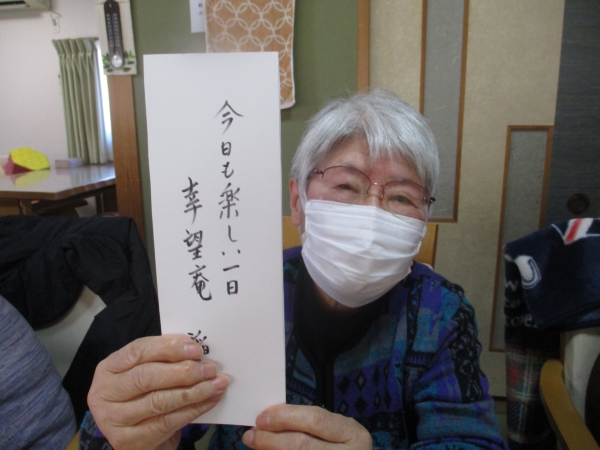 今日も楽しい一日
幸望庵
稲